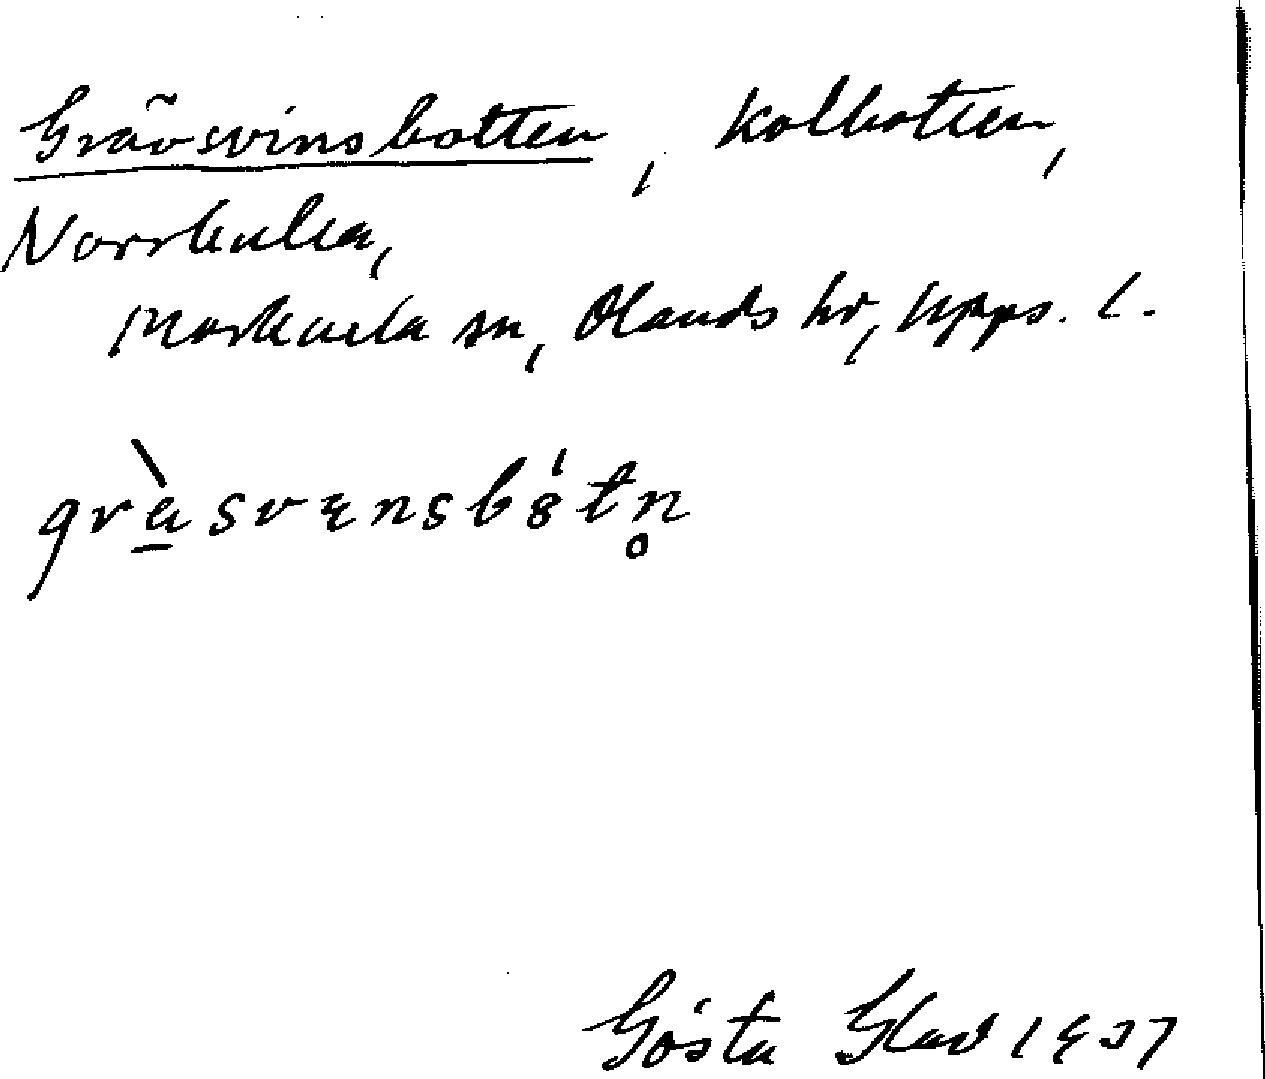 Grävsvinsbotten, kolbotten,
Norrkulla,
Morkarla sn, Olands hr, Upps. l.
gràsvensbótn̥
Gösta Glad 1937